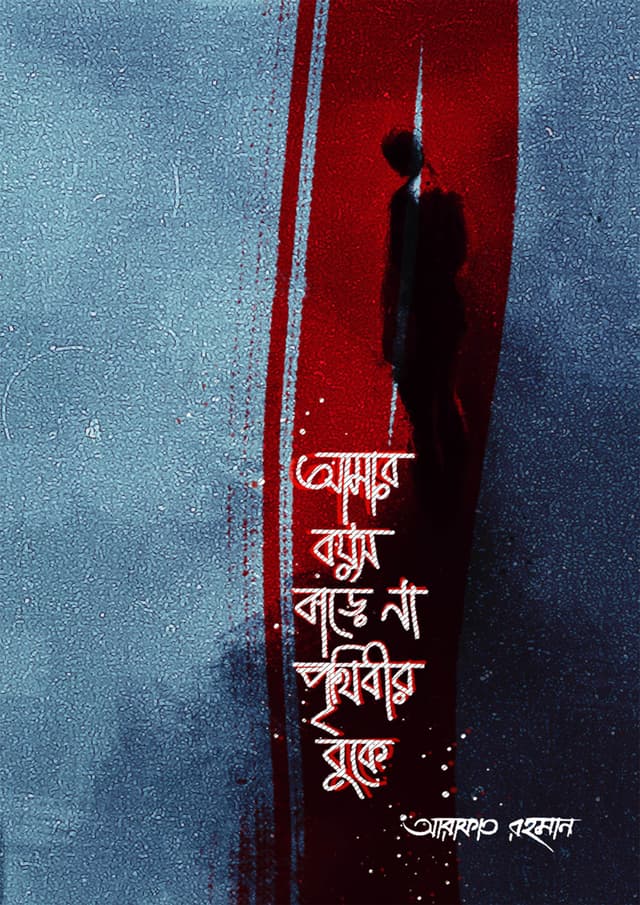 আমার
বয়স
বাড়ে না
পৃথিবীর
বুকে
আরাফাত রহমান